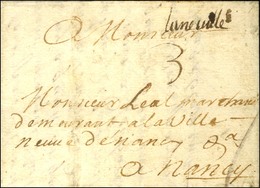 A Monsieur
Luneville
3
Monsieur Leal marchand
demeurant a la Ville
neuve de nancy
A Nancy